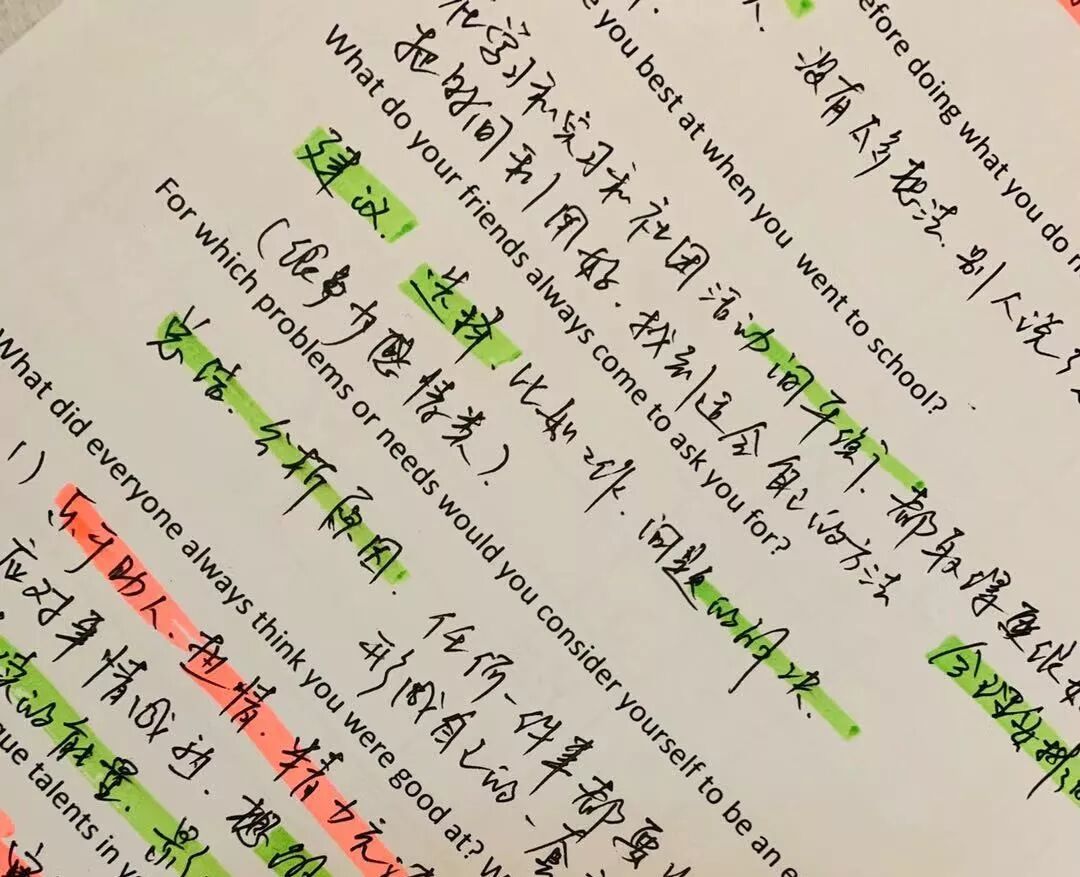 efore doing what you do n
没有太多想法.别人说
you best at when you went to school?
学习和实习和社团活动间平衡,都取得
把时间利用好.找到适合自己的方法
What do your friends always come to ask you for?
建议.选择.比如工作.问题的解决.
(很多为感情类)
For which problems or needs would you consider yourself to be an e
总结.分析原因.
任何一件事都要
形成自己的一套
What did everyone always think you were good at? W
1) 乐于助人.热情.精力充
应对事情成熟.
的能量.影
que talents in yo